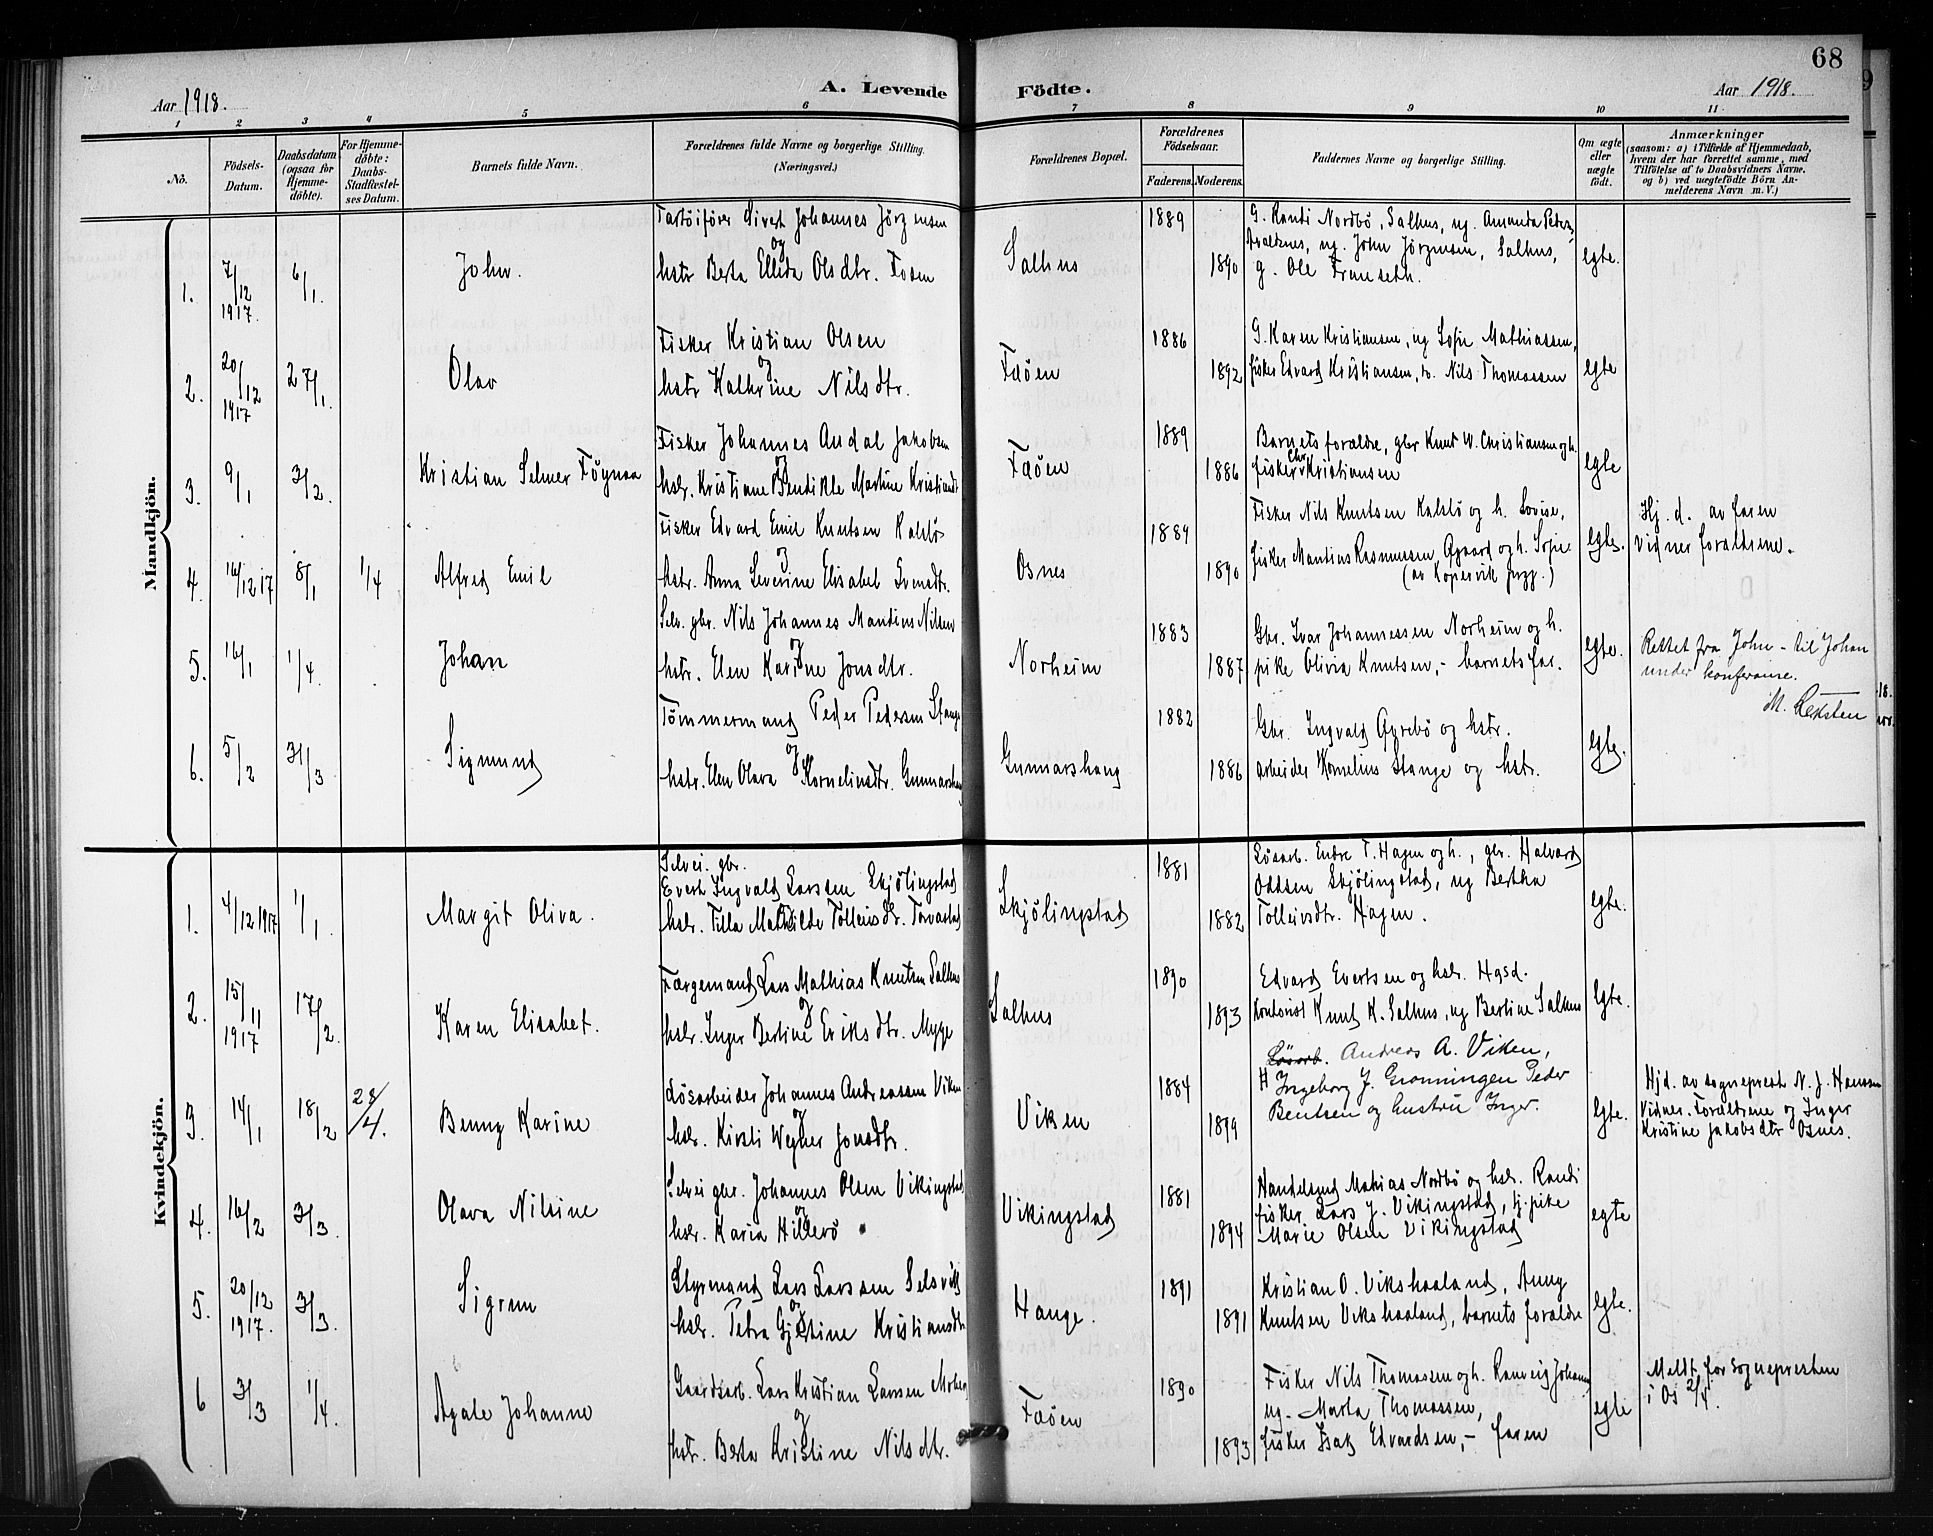 68
Aar 1918.
A. Levende Födte.
Aar 1918.
1 2 3 4 5 6 7 8 9 10 11
No.
Födsels-Datum.
Daabsdatum (ogsaa for Hjemmedöbte).
For Hjemmedöbte: Daabs-Stadfæstelses Datum.
Barnets fulde Navn.
Forældrenes fulde Navne og borgerlige Stilling.
(Næringsvei.)
Forældrenes Bopæl.
Forældrenes Födselsaar.
Faderens. Moderens.
Faddernes Navne og borgerlige Stilling.
Om ægte eller uægte födt.
Anmærkninger
(saasom: a) i Tilfælde af Hjemmedaab,
hvem der har forrettet samme, med
Tilföielse af to Daabsvidners Navne.
og b) ved uægtefödte Börn Anmelderens Navn m. V.)
Mandkjön.
1. 7/12 1917. 6/1 John.
Sivert Johannes Jörgensen
og
hstr Berta Ellida Olsdtr. Foen
Salhus 1889 1890
G. Randi Nordbö, Salhus, ug. Amanda Peders,
ug. John Jörgensen, Salhus,
g. Ole Franseth.
egte.
2. 20/12 1917 27/1. Olav
Fisker Kristian Olsen
og
hstr Kathrine Nilsdtr.
Fæöen 1886 1892
G. Karen Kristiansen, ug Sofie Mathiassen,
fisker Edvard Kristiansen, Nils Thomassen
egte
3. 9/1 3/2. Kristian Selmer Föynaa
Fisker Johannes Andal Jakobsen
og
hstr. Kristiane Bendikte Martine Kristiansdt
Fæöen 1889 1886
Barnets forældre, gbr Knut W. Christiansen og h.
fisker Chr. Kristiansen
egte
4. 16/12 17 8/1 1/4 Alfred Emil
Fisker Edvard Emil Knutsen Kalstö
og
hstr. Anna Severine Elisabet Svensdtr.
Osnes 1889 1890
Fisker Nils Knutsen Kalstö og h. Lovise,
fisker Mantius Rasmussen Øgaard og h. Sofie
(av Kopervik)
egte.
Hj. d. av faren
Vidner foraldrene.
5. 16/1 1/4. Johan
Selv. gbr. Nils Johannes Mantius Nilsen
og
hstr. Elen Karine Jonsdtr.
Norheim 1883 1887
Gbr. Ivar Johannessen Norheim og h.
pike Olivia Knutsen, - barnets far.
egte.
Rettet fra John - til Johan
under konferanse.
6. 5/2 31/3 Sigmund
Tömmermand Peder Pedersen Stange
og
hstr. Elen Olava Kornelinsdtr. Gunnarshaug
Gunnarshaug 1882 1886
Gbr. Ingvald Øyrebö og hstr.
arbeider Kornelius Stange og hstr.
egte.
Kvindekjön.
1. 4/12 1917 1/1. Margit Oliva.
Selvei. gbr.
Evert Ingvald Larssen Skjölingstad
hstr. Tilla Mathilde Tolleivsdtr. Torvastad
Skjölingstad 1881 1882
Lösarb. Endre T. Hagen og h., gbr. Halvard
Oddsen Skjölingstad, ug Bertha
Tolleivsdtr. Hagen.
egte.
2. 15/11 1917 17/2. Karen Elisabet.
Færgemand Lars Mathias Knutsen Salhus
og
hstr. Inger Bertine Eriksdtr. Mygge
Salhus 1890 1893
Edvard Evertsen og hstr. Hgsd.
Kontorist Knut K. Salhus, ug Bertine Salhus
egte.
3. 14/1 18/2 28/4. Benny Karine
Lösarbeider Johannes Andreassen Viken
og
hstr. Kirsti Wegner Jonsdtr.
Viken 1884 1899
Lösarb. Andreas A. Viken,
Ingeborg J. Gronningen Peder
Bentsen og hustru Inger.
egte.
Hjd. av sogneprest N. J. Hanssen
Vidner. Foraldrene og Inger
Kristine Jakobsdtr Osnes.
4. 16/2 3/3. Olava Nilsine
Selvei gbr. Johannes Olsen Vikingstad
og
hstr. Karia Hillerö
Vikingstad 1881 1894
Handelsmd Mathias Nordbö og hstr. Randi
fisker Lars J. Vikingstad, tj. pike
Marie Olsen Vikingstad
egte
5. 20/12 1917. 3/3. Sigrun
Styrmand Lars Larssen Selsvik
og
hstr. Petra Gjertine Kristiansdtr
Hauge. 1891 1891
Kristian O. Vikshaaland, Anny
Knutsen Vikshaaland, barnets foraldre
egte.
6 3/3 1/4. Agate Johanne
Gaardsarb. Lars Kristian Larsen
og
hstr. Berta Kristine Nilsdtr.
Fæöen 1890 1893
Fisker Nils Thomassen og h. Ranveig Johanne
ug. Marta Thomassen,
fisker Isak Edvardsen, - faren
egte
Meldt for sognepresten
i Os 2/4.